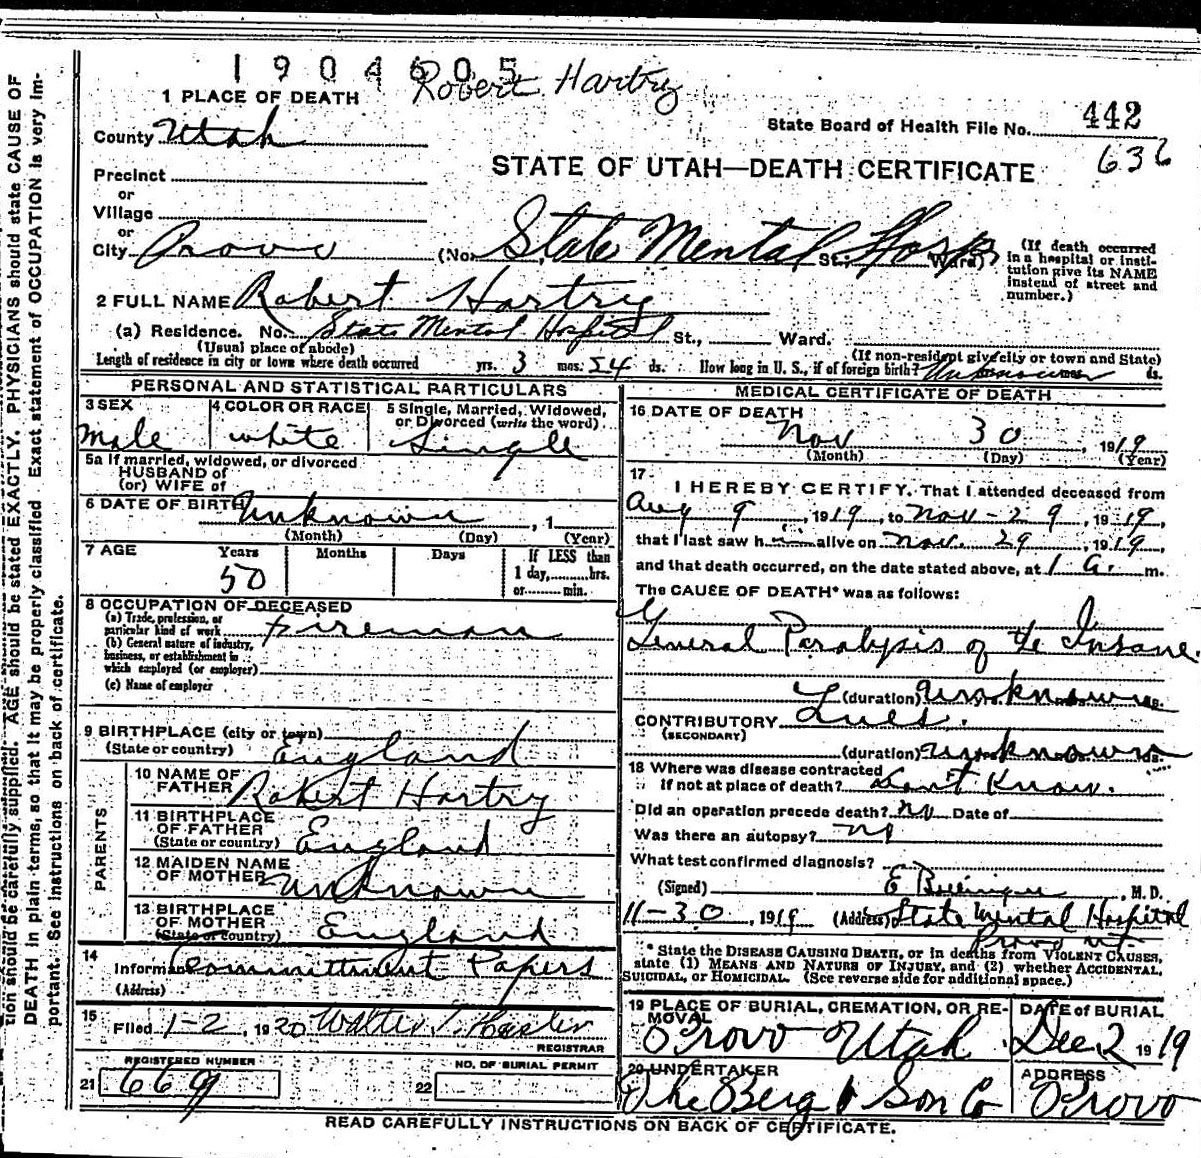 1904605
Robert Hartry
1 PLACE OF DEATH
County Utah
State Board of Health File No. 442
636
Precinct
or
Village
or
City Provo (No. State Mental Hosp St., Ward)
STATE OF UTAH—DEATH CERTIFICATE
(If death occurred in a hospital or institution give its NAME instead of street and number.)
2 FULL NAME Robert Hartry
(a) Residence. No. State Mental Hospital St., Ward.
(Usual place of abode)
(If non-resident give city or town and State)
Length of residence in city or town where death occurred yrs. 3 mos. 24 ds. How long in U. S., if of foreign birth? Unknown ds.
PERSONAL AND STATISTICAL PARTICULARS
3 SEX
Male
4 COLOR OR RACE
white
5 Single, Married, Widowed, or Divorced (write the word)
Single
5a If married, widowed, or divorced
HUSBAND of
(or) WIFE of
6 DATE OF BIRTH Unknown , 1
(Month) (Day) (Year)
7 AGE Years Months Days If LESS than
50
1 day, hrs.
or min.
8 OCCUPATION OF DECEASED
(a) Trade, profession, or
particular kind of work Fireman
(b) General nature of industry,
business, or establishment in
which employed (or employer)
(c) Name of employer
9 BIRTHPLACE (city or town)
(State or country) England
PARENTS
10 NAME OF
FATHER Robert Hartry
11 BIRTHPLACE
OF FATHER
(State or country) England
12 MAIDEN NAME
OF MOTHER unknown
13 BIRTHPLACE
OF MOTHER
(State or country) England
14
Informant Committment Papers
(Address)
15
Filed 1-2, 1920 Walter
REGISTRAR
REGISTERED NUMBER
21 669
NO. OF BURIAL PERMIT
22
MEDICAL CERTIFICATE OF DEATH
16 DATE OF DEATH
Nov 30 , 1919
(Month) (Day) (Year)
17
I HEREBY CERTIFY, That I attended deceased from
Aug 9 , 1919 , to Nov - 29 , 1919,
that I last saw him alive on Nov. 29 , 1919,
and that death occurred, on the date stated above, at 1 a. m.
The CAUSE OF DEATH* was as follows:
General Paralysis of the Insane.
(duration) unknown ds.
CONTRIBUTORY Lues.
(SECONDARY)
(duration) unknown ds.
18 Where was disease contracted
If not at place of death? Don't Know.
Did an operation precede death? no Date of
Was there an autopsy? no
What test confirmed diagnosis?
(Signed) E , M. D.
11-30 , 1919 (Address) State Mental Hospital
Provo Ut
* State the DISEASE CAUSING DEATH, or in deaths from VIOLENT CAUSES,
state (1) MEANS AND NATURE OF INJURY, and (2) whether ACCIDENTAL,
SUICIDAL, or HOMICIDAL. (See reverse side for additional space.)
19 PLACE OF BURIAL, CREMATION, OR RE-
MOVAL
Provo Utah
DATE of BURIAL
Dec 2 1919
20 UNDERTAKER
The Berg & Son Co
ADDRESS
Provo
READ CAREFULLY INSTRUCTIONS ON BACK OF CERTIFICATE.
tion should be carefully supplied. AGE should be stated EXACTLY. PHYSICIANS should state CAUSE OF
DEATH in plain terms, so that it may be properly classified Exact statement of OCCUPATION is very im-
portant. See instructions on back of certificate.